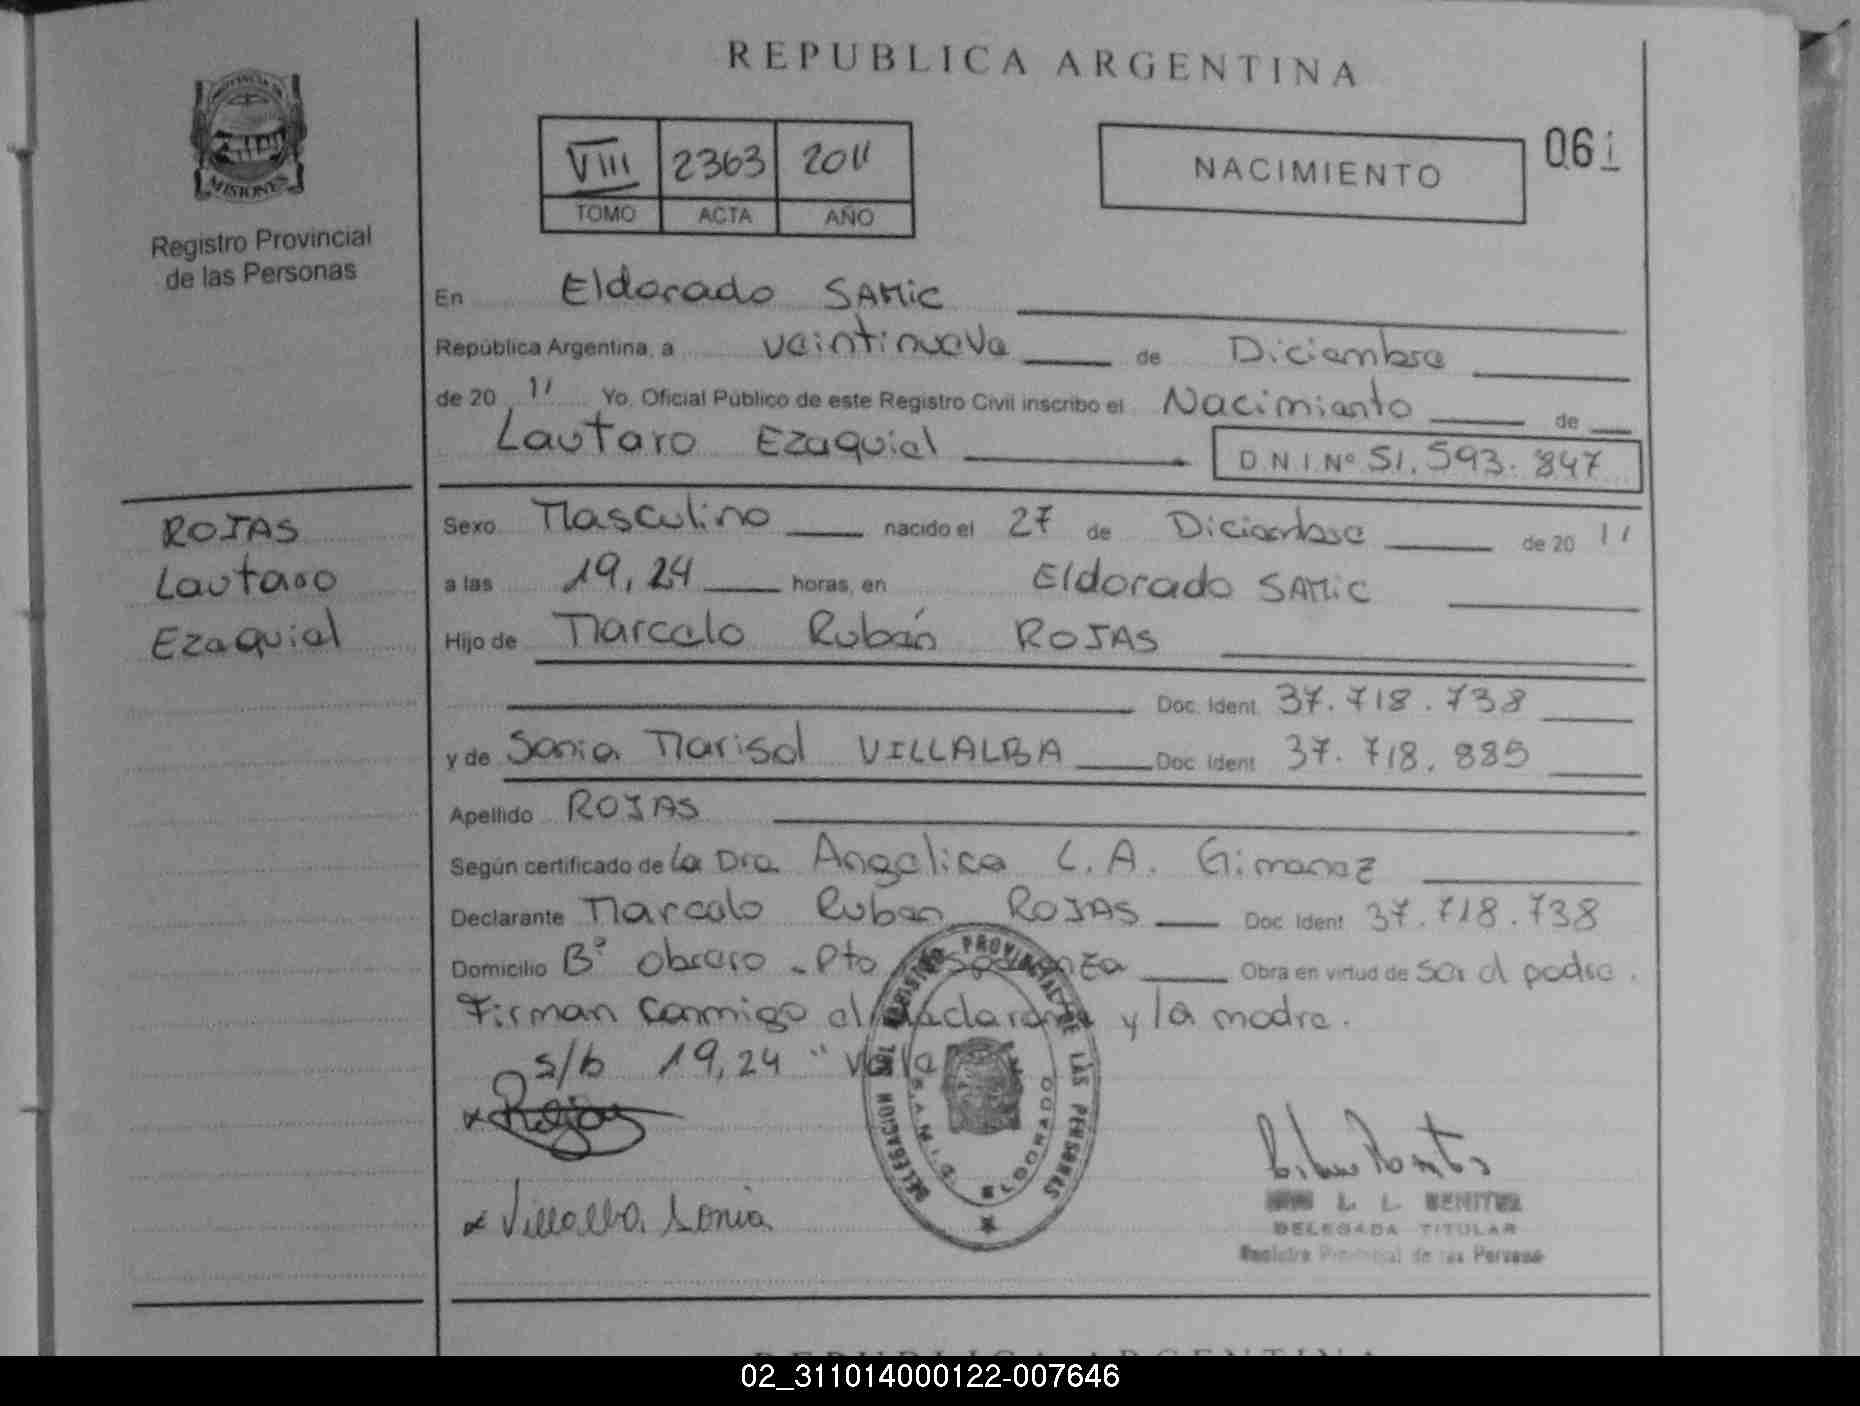 REPUBLICA ARGENTINA
PROVINCIA DE
MISIONES
Registro Provincial
de las Personas
VIII 2363 2011
TOMO ACTA AÑO
NACIMIENTO
061
En Eldorado SAMIC
República Argentina, a veintinueve de Diciembre
de 20 11 Yo, Oficial Público de este Registro Civil inscribo el Nacimiento de
Lautaro Ezequiel D N I Nº 51.593.847
ROJAS
Lautaro
Ezequiel
Sexo Masculino nacido el 27 de Diciembre de 20 11
a las 19,24 horas, en Eldorado SAMIC
Hijo de Marcelo Rubén ROJAS
Doc. Ident. 37.718.738
y de Sonia Marisol VILLALBA Doc. Ident 37.718.885
Apellido ROJAS
Según certificado de la Dra. Angelica L.A. Gimenez
Declarante Marcelo Ruben ROJAS Doc. Ident 37.718.738
Domicilio Bº Obrero - Pto Obra en virtud de ser el padre.
Firman conmigo el declarante y la madre.
s/b 19,24 "Vale
x Rojas
x Villalba Sonia
DELEGACION DEL REGISTRO PROVINCIAL DE LAS PERSONAS
S.A.M.I.C. ELDORADO
L. L. BENITEZ
DELEGADA TITULAR
Registro Provincial de las Personas
REPUBLICA ARGENTINA
02_311014000122-007646